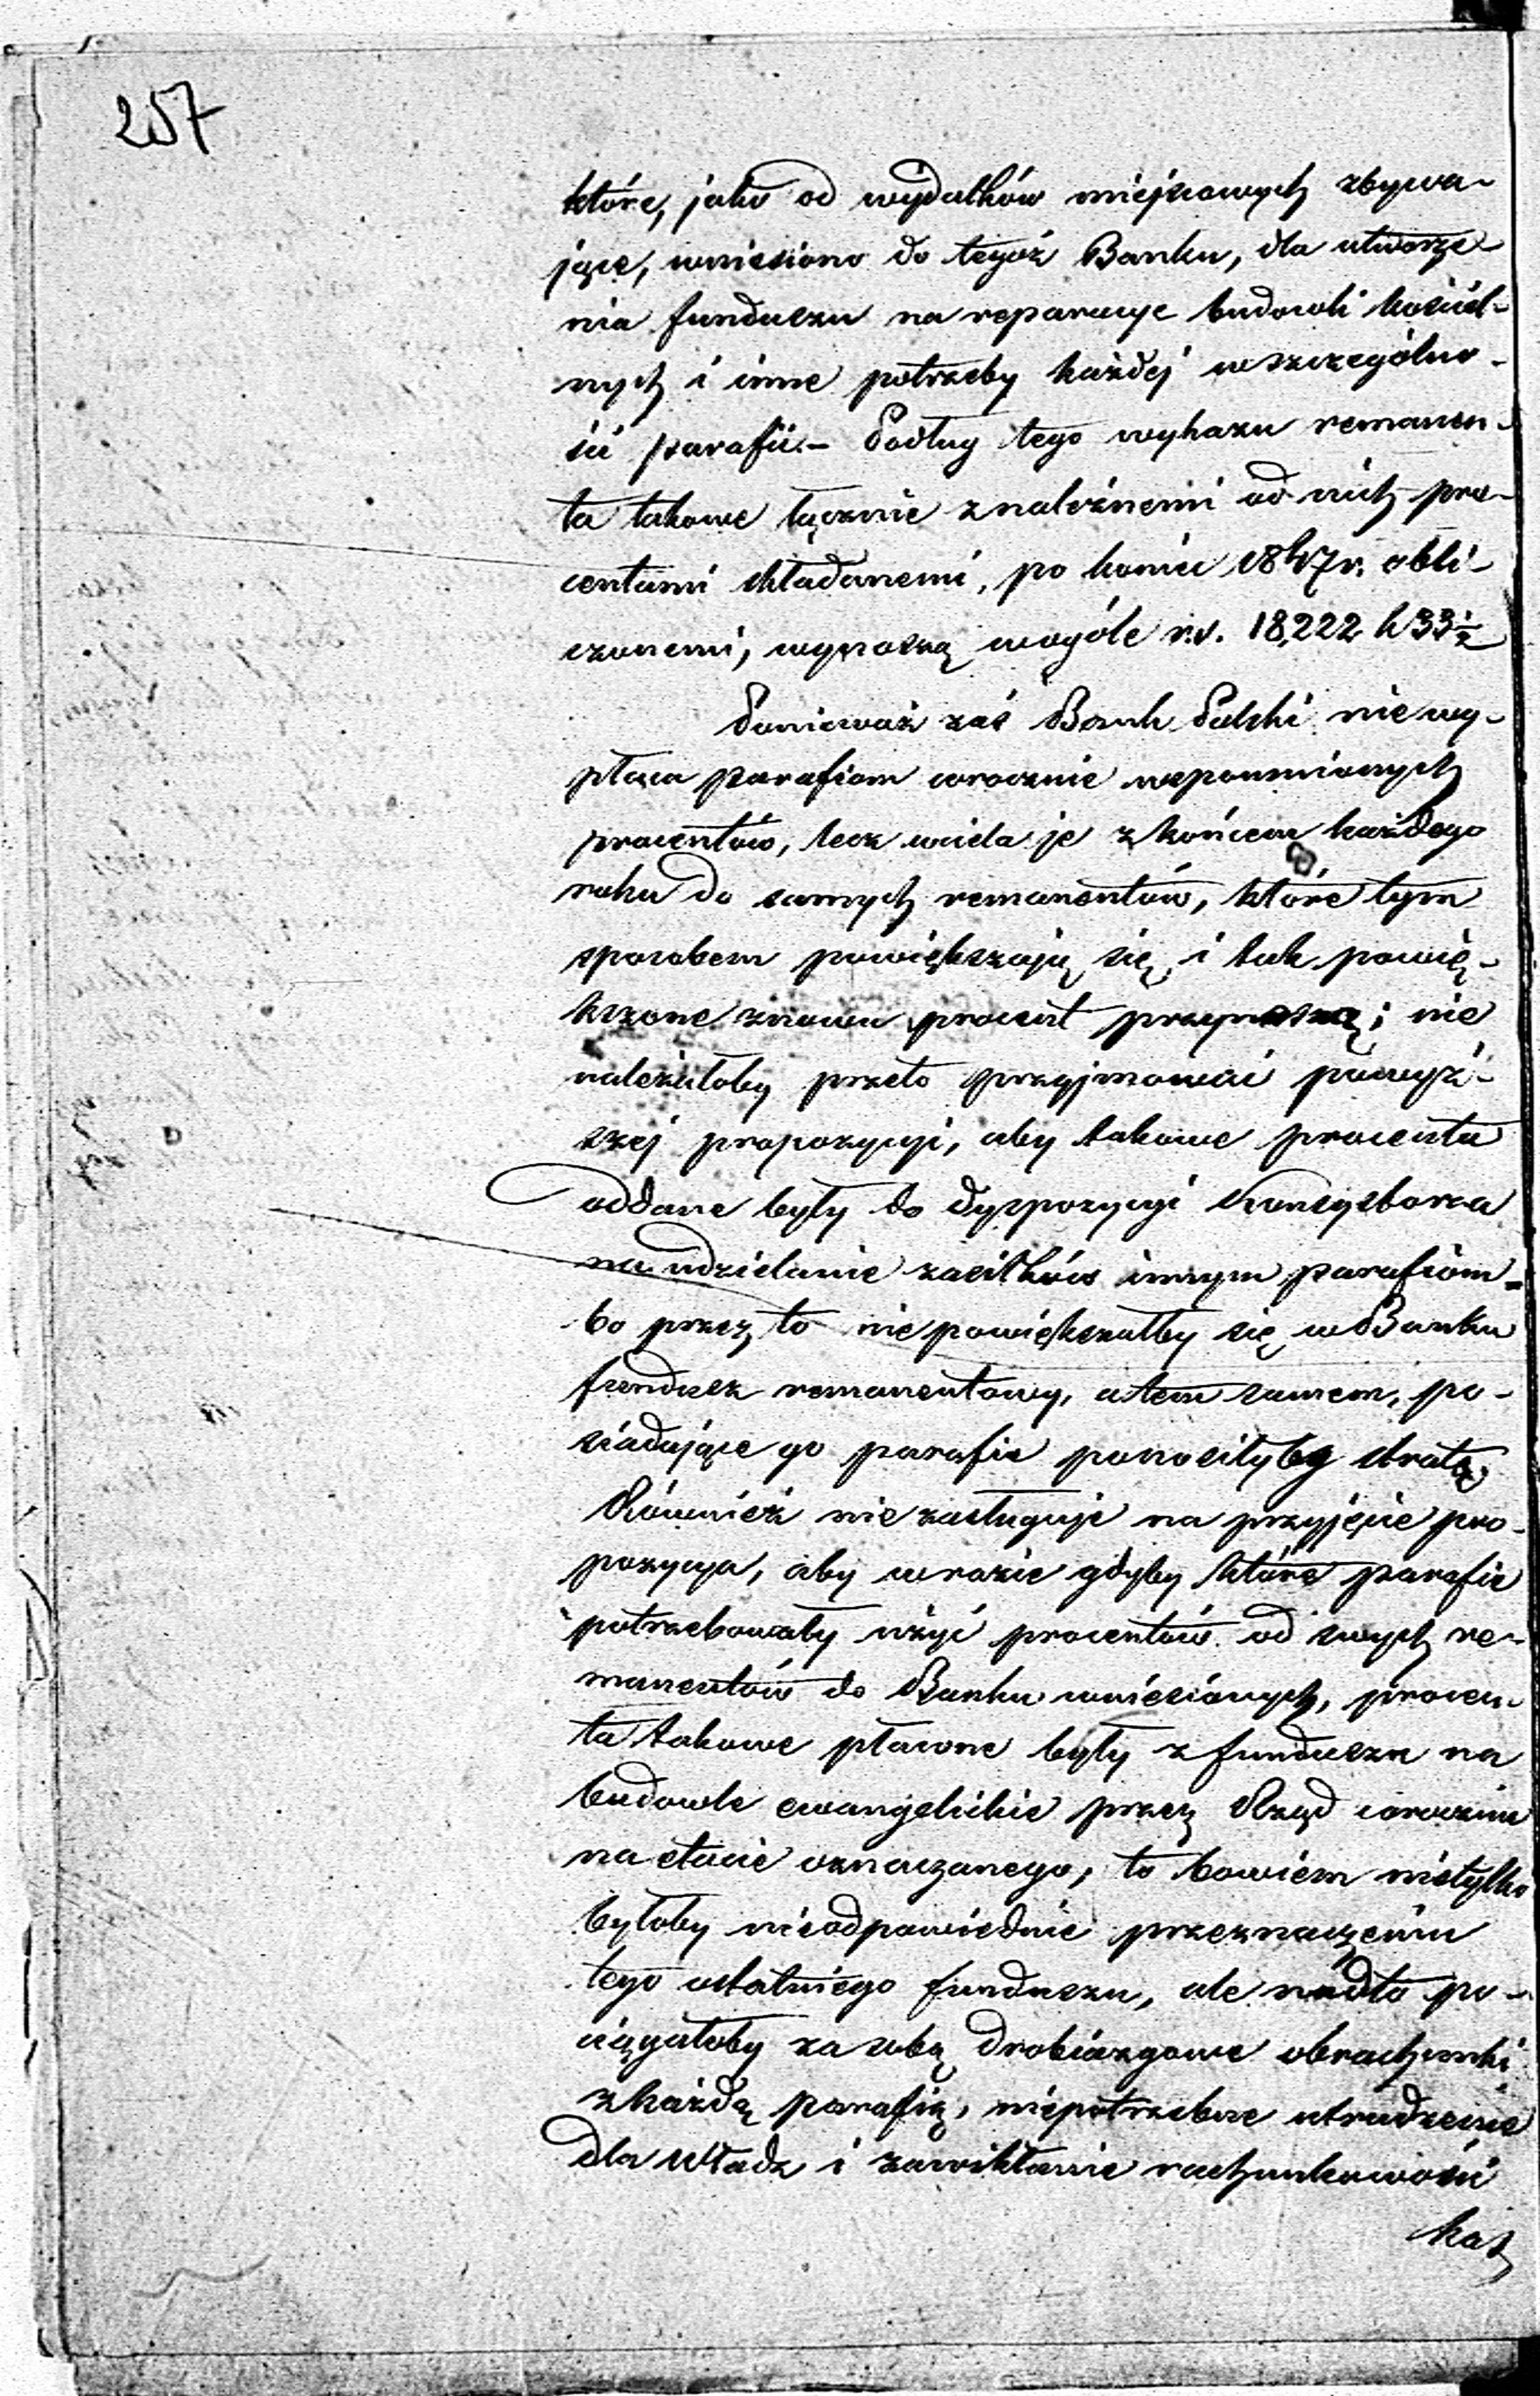 257
które, jako od wydatków miejscowych zbywa-
jące, wniesiono do tegoż Banku, dla utworze-
nia funduszu na reparacye budowli kościel-
nych i inne potrzeby każdej w szczególno-
ści parafii.- Podług tego wykazu remanen-
ta takowe łącznie z należnemi od nich pro-
centami składanemi, po koniec 1847 r. obli-
czonemi, wynoszą wogóle r.s. 18,222 k 33 ½
Ponieważ zaś Bank Polski nie wy-
płaca parafiom corocznie wspomnionych
procentów, lecz wciela je z końcem każdego
roku do samych remanentów, które tym
sposobem powiększają się i tak powię-
kszone znowu procent przynoszą; nie
należałoby przeto przyjmować powyż-
szej propozycyi, aby takowe procenta
oddane były do dyspozycyi Konsystorza
na udzielanie zasiłków innym parafiom-
bo przez to nie powiększałby się w Banku
fundusz remanentowy, a tem samem, po-
siadające go parafie ponosiłyby stratę.
Również nie zasługuje na przyjęcie pro-
pozycya, aby w razie gdyby które parafie
potrzebowały użyć procentów od swych re-
manentów do Banku wniesionych, procen-
ta takowe płacone były z funduszu na
budowle ewangelickie przez Rząd corocznie
na etacie oznaczanego; to bowiem nietylko
byłoby nieodpowiednie przeznaczeniu
tego ostatniego funduszu, ale nadto po-
ciągałoby za sobą drobiazgowe obrachunki
z każdą parafią, niepotrzebne utrudzenie
dla Władz i zawikłanie rachunkowości
kas